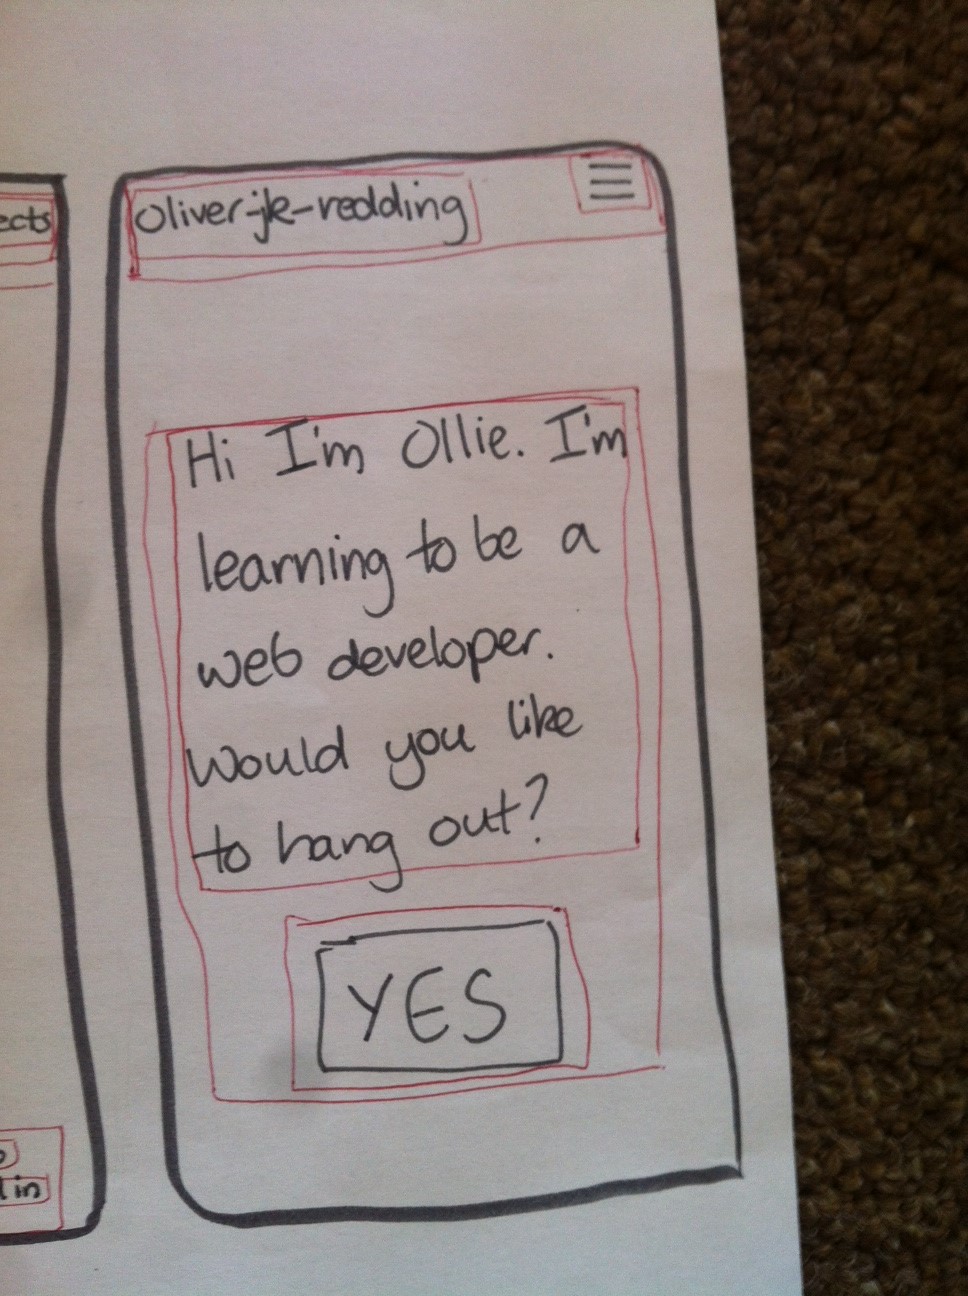 ects
oliver-jk-redding
Hi I'm Ollie. I'm
learning to be a
web developer.
Would you like
to hang out?
YES
in